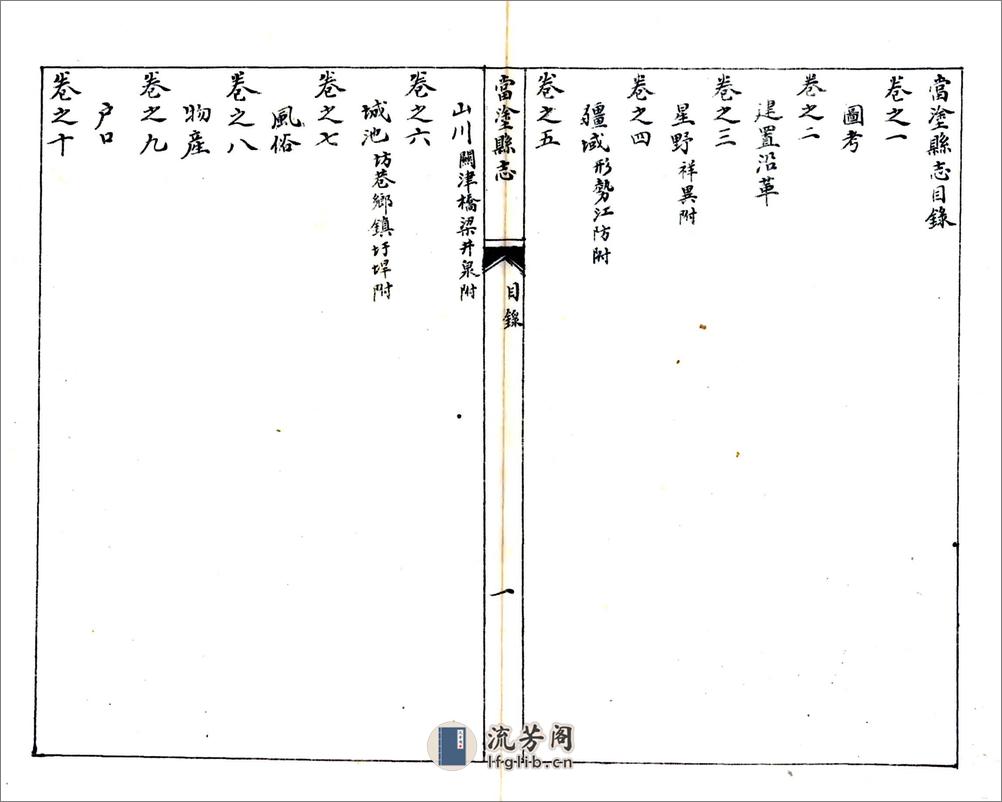 當塗縣志目錄
卷之一
圖考
卷之二
建置沿革
卷之三
星野祥異附
卷之四
疆域形勢江防附
卷之五
當塗縣志
目錄
一
山川關津橋梁井泉附
卷之六
城池坊巷鄉鎮圩垾附
卷之七
風俗
卷之八
物産
卷之九
戶口
卷之十
流芳阁
lfglib.cn